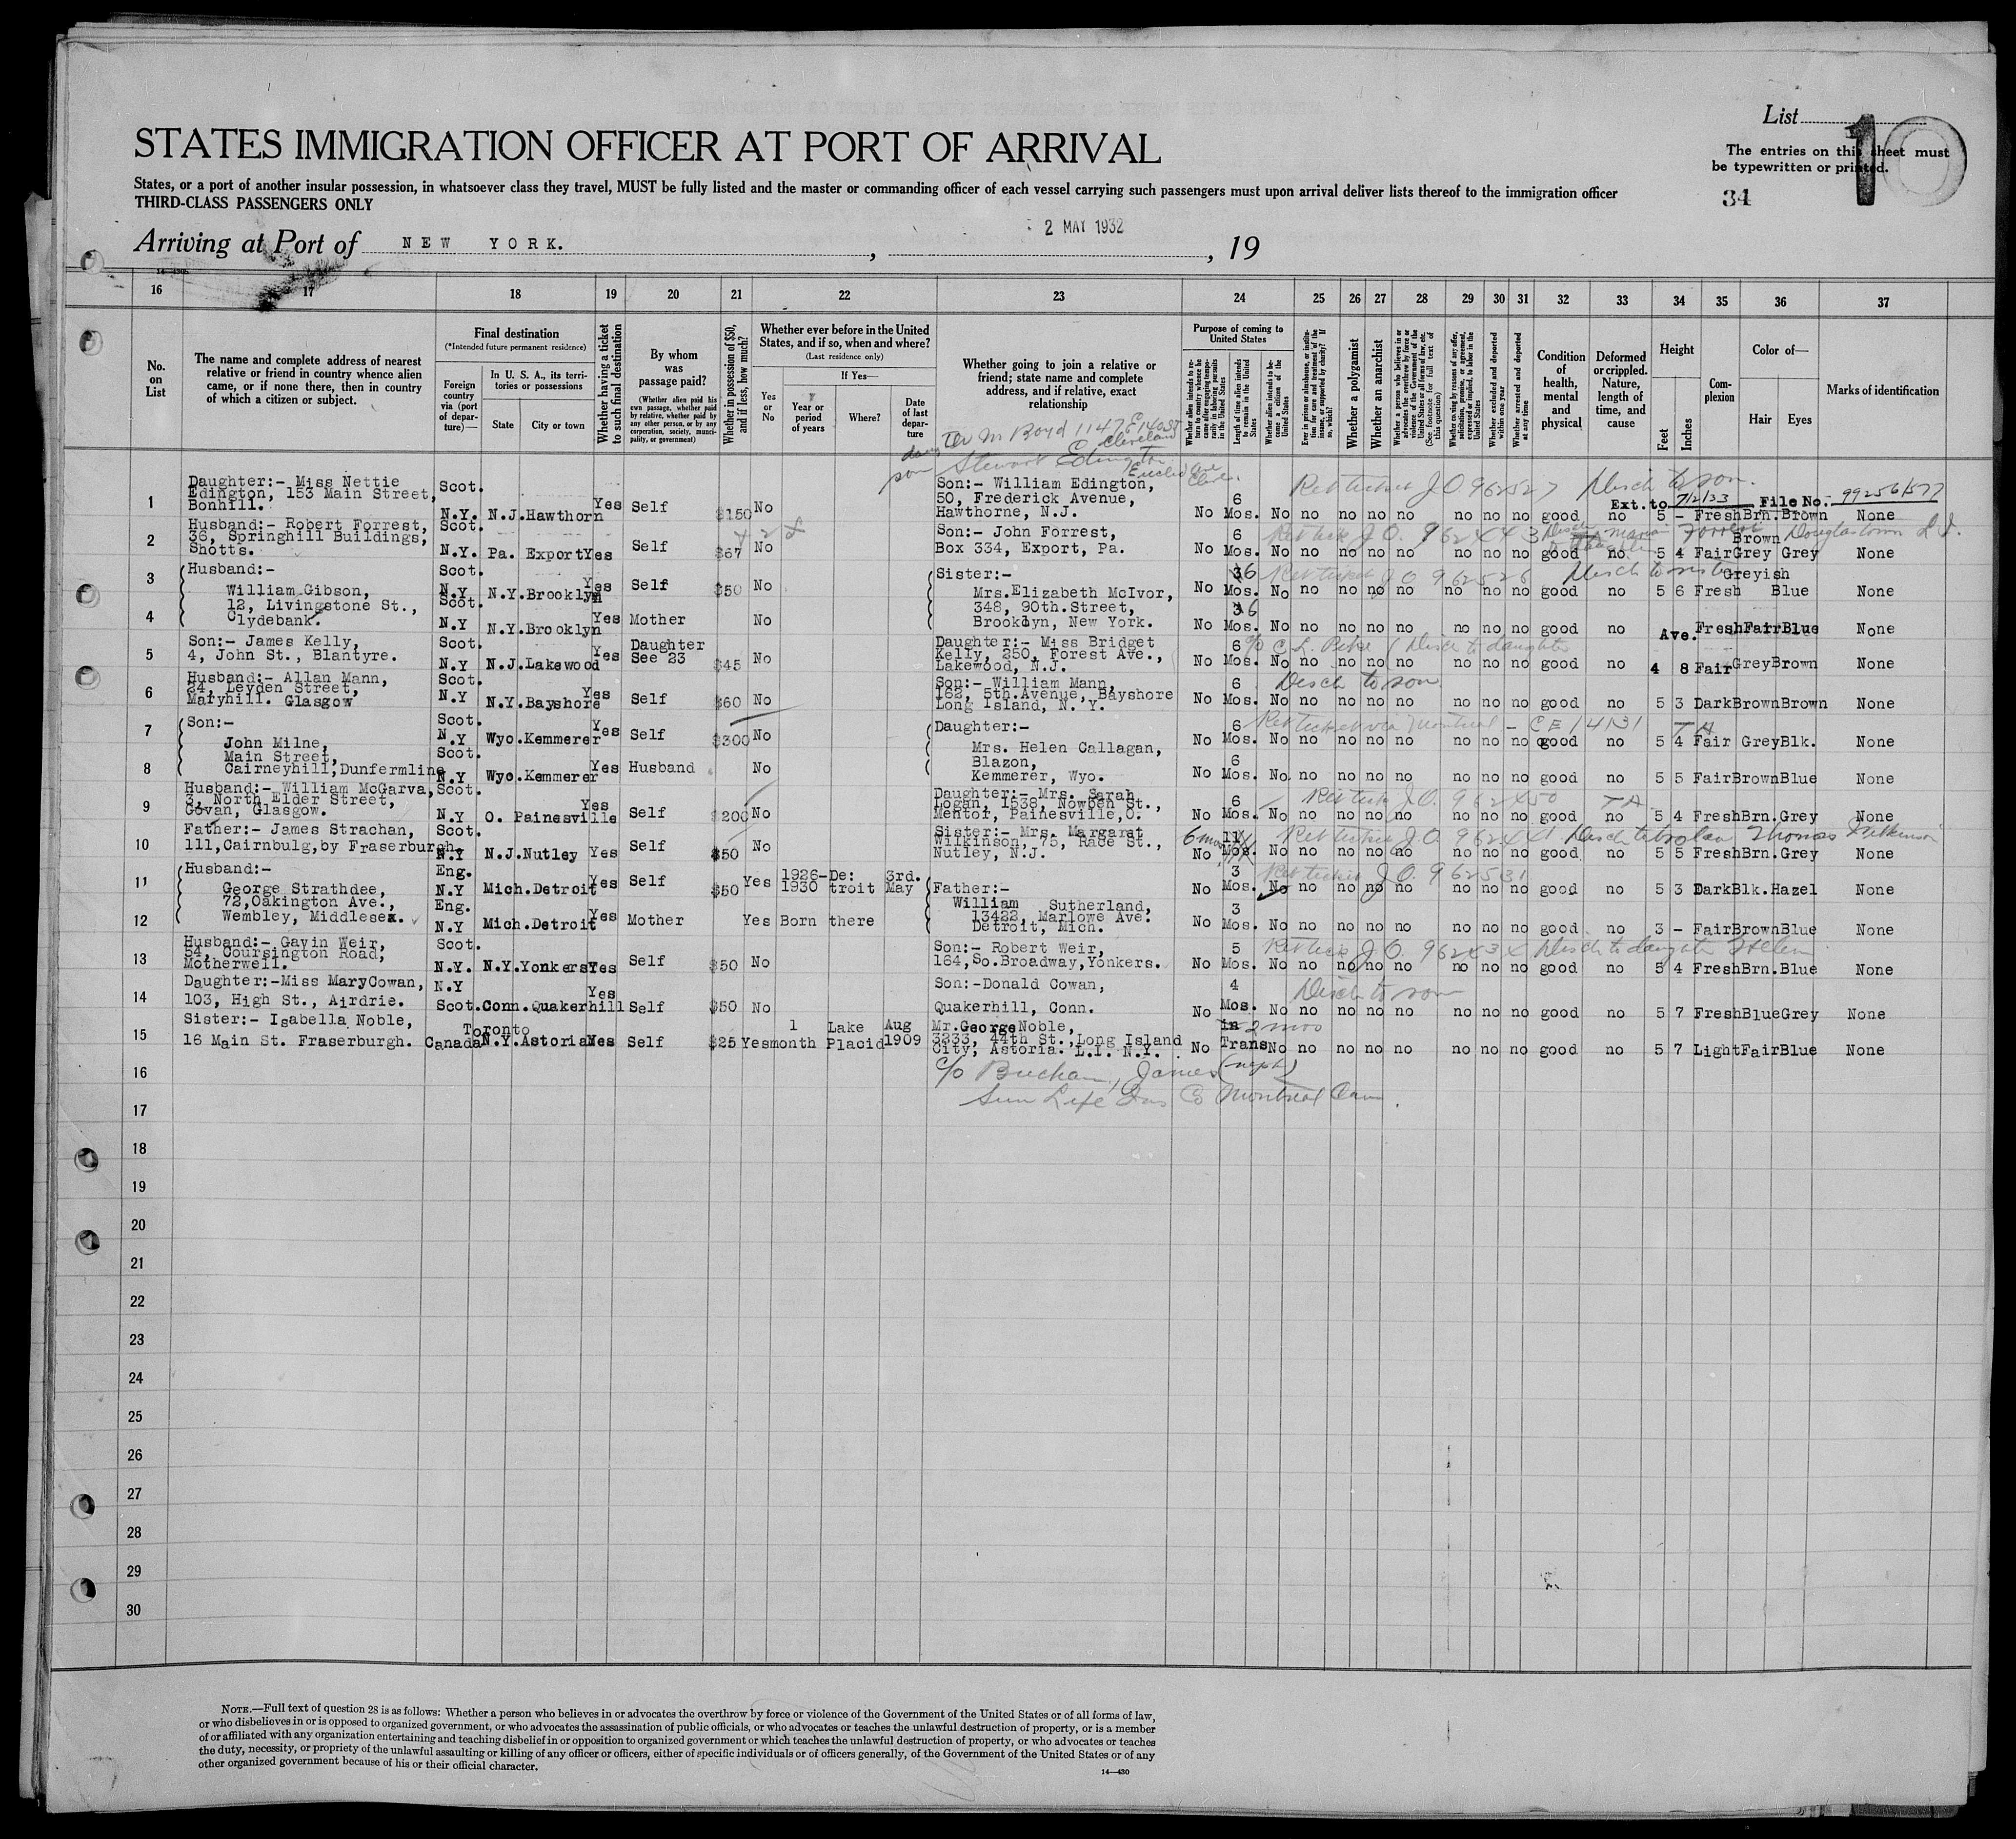 List
10
The entries on this sheet must
be typewritten or printed.
34
STATES IMMIGRATION OFFICER AT PORT OF ARRIVAL
States, or a port of another insular possession, in whatsoever class they travel, MUST be fully listed and the master or commanding officer of each vessel carrying such passengers must upon arrival deliver lists thereof to the immigration officer
THIRD-CLASS PASSENGERS ONLY
Arriving at Port of NEW YORK. , 2 MAY 1932 , 19
16 17 18 19 20 21 22 23 24 25 26 27 28 29 30 31 32 33 34 35 36 37
No. on List
The name and complete address of nearest relative or friend in country whence alien came, or if none there, then in country of which a citizen or subject.
Final destination
(*Intended future permanent residence)
Foreign country via (port of departure)—
In U. S. A., its territories or possessions
State
City or town
Whether having a ticket to such final destination
By whom was passage paid?
(Whether alien paid his own passage, whether paid by relative, whether paid by any other person, or by any corporation, society, municipality, or government)
Whether in possession of $50, and if less, how much?
Whether ever before in the United States, and if so, when and where?
(Last residence only)
Yes or No
If Yes—
Year or period of years
Where?
Date of last departure
Whether going to join a relative or friend; state name and complete address, and if relative, exact relationship
Purpose of coming to United States
Length of time alien intends to remain in the United States
Whether alien intends to become a citizen of the United States
Whether a polygamist
Whether an anarchist
Whether excluded and deported within one year
Whether arrested and deported at any time
Condition of health, mental and physical
Deformed or crippled. Nature, length of time, and cause
Height
Feet
Inches
Complexion
Color of—
Hair
Eyes
Marks of identification
M Boyd 1147 E 140 St
Cleveland
son Stewart Edington
Euclid Ave
1 Daughter:- Miss Nettie Edington, 153 Main Street, Bonhill. Scot. N.Y. N.J. Hawthorn Yes Self $150 No Son:- William Edington, 50, Frederick Avenue, Hawthorne, N.J. No 6 Mos. No no no no no no no no good no 5 - Fresh Brn. Brown None
Ret ticket J.O 962527 Disch to son.
Ext. to 7/2/33 File No. 99256/577
2 Husband:- Robert Forrest, 36, Springhill Buildings, Shotts. Scot. N.Y. Pa. Export Yes Self $67 No Son:- John Forrest, Box 334, Export, Pa. No 6 Mos. No no no no no no no no good no. 5 4 Fair Brown Grey Grey None
Douglastown L.I.
3 Husband:- William Gibson, 12, Livingstone St., Clydebank. Scot. N.Y N.Y. Brooklyn Yes Self $50 No Sister:- Mrs. Elizabeth McIvor, 348, 90th. Street, Brooklyn, New York. No 6 Mos. No no no no no no no no good no 5 6 Fresh Greyish Blue None
Ret ticket J O 962526 Disch to sister
4 Scot. N.Y N.Y. Brooklyn Yes Mother No No 6 Mos. No no no no no no no no good no Ave. Fresh Fair Blue None
5 Son:- James Kelly, 4, John St., Blantyre. Scot. N.Y N.J. Lakewood Yes Daughter See 23 $45 No Daughter:- Miss Bridget Kelly, 250, Forest Ave., Lakewood, N.J. No 6 Mos. No no no no no no no no good no 4 8 Fair Grey Brown None
Disch to daughter
6 Husband:- Allan Mann, 24, Leyden Street, Maryhill. Glasgow Scot. N.Y N.Y. Bayshore Yes Self $60 No Son:- William Mann, 162, 5th. Avenue, Bayshore Long Island, N. Y. No 6 Mos. No no no no no no no no good no 5 3 Dark Brown Brown None
Disch to son
7 Son:- John Milne, Main Street, Cairneyhill, Dunfermline Scot. N.Y Wyo. Kemmerer Yes Self $300 No Daughter:- Mrs. Helen Callagan, Blazon, Kemmerer, Wyo. No 6 Mos. No no no no no no no no good no 5 4 Fair Grey Blk. None
Ret ticket via Montreal - C E 14131
8 Scot. N.Y Wyo. Kemmerer Yes Husband No No 6 Mos. No. no no no no no no no good no 5 5 Fair Brown Blue None
9 Husband:- William McGarva, 3, North Elder Street, Govan, Glasgow. Scot. N.Y O. Painesville Yes Self $200 No Daughter:- Mrs. Sarah Logan, 1538, Nowben St., Mentor, Painesville, O. No 6 Mos. No no no no no no no no good no 5 4 Fresh Brn. Grey None
10 Father:- James Strachan, 111, Cairnbulg, by Fraserburgh. Scot. N.Y N.J. Nutley Yes Self $50 No Sister:- Mrs. Margaret Wilkinson, 75, Race St., Nutley, N.J. 6 mos No 11 Mos. No no no no no no no no good no 5 5 Fresh Brn. Grey None
11 Husband:- George Strathdee, 72, Oakington Ave., Wembley, Middlesex. Eng. N.Y Mich. Detroit Yes Self $50 Yes 1926-1930 Detroit 3rd. May Father:- William Sutherland, 13422, Marlowe Ave. Detroit, Mich. No 3 Mos. No no no no no no no no good no 5 3 Dark Blk. Hazel None
Ret ticket J.O. 962531
12 Eng. N.Y Mich. Detroit Yes Mother Yes Born there No 3 Mos. No no no no no no no no good no 3 - Fair Brown Blue None
13 Husband:- Gavin Weir, 54, Coursington Road, Motherwell. Scot. N.Y. N.Y. Yonkers Yes Self $50 No Son:- Robert Weir, 164, So. Broadway, Yonkers. No 5 Mos. No no no no no no no no good no 5 4 Fresh Brn. Blue None
Disch to daughter Helen
14 Daughter:-Miss Mary Cowan, 103, High St., Airdrie. N.Y Scot. Conn. Quakerhill Yes Self $50 No Son:-Donald Cowan, Quakerhill, Conn. No 4 Mos. No no no no no no no no good no 5 7 Fresh Blue Grey None
Disch to son
15 Sister:- Isabella Noble, 16 Main St. Fraserburgh. Toronto Canada N.Y. Astoria Yes Self $25 Yes 1 month Lake Placid Aug 1909 Mr. George Noble, 3233, 44th St., Long Island City, Astoria. L.I. N.Y. No in Trans No no no no no no no no good no 5 7 Light Fair Blue None
2 mos
16 c/o Buchan, James (neph)
17 Sun Life Ins Co Montreal Can.
18
19
20
21
22
23
24
25
26
27
28
29
30
NOTE.—Full text of question 28 is as follows: Whether a person who believes in or advocates the overthrow by force or violence of the Government of the United States or of all forms of law,
or who disbelieves in or is opposed to organized government, or who advocates the assassination of public officials, or who advocates or teaches the unlawful destruction of property, or is a member
of or affiliated with any organization entertaining and teaching disbelief in or opposition to organized government or which teaches the unlawful destruction of property, or who advocates or teaches
the duty, necessity, or propriety of the unlawful assaulting or killing of any officer or officers, either of specific individuals or of officers generally, of the Government of the United States or of any
other organized government because of his or their official character.
14—430